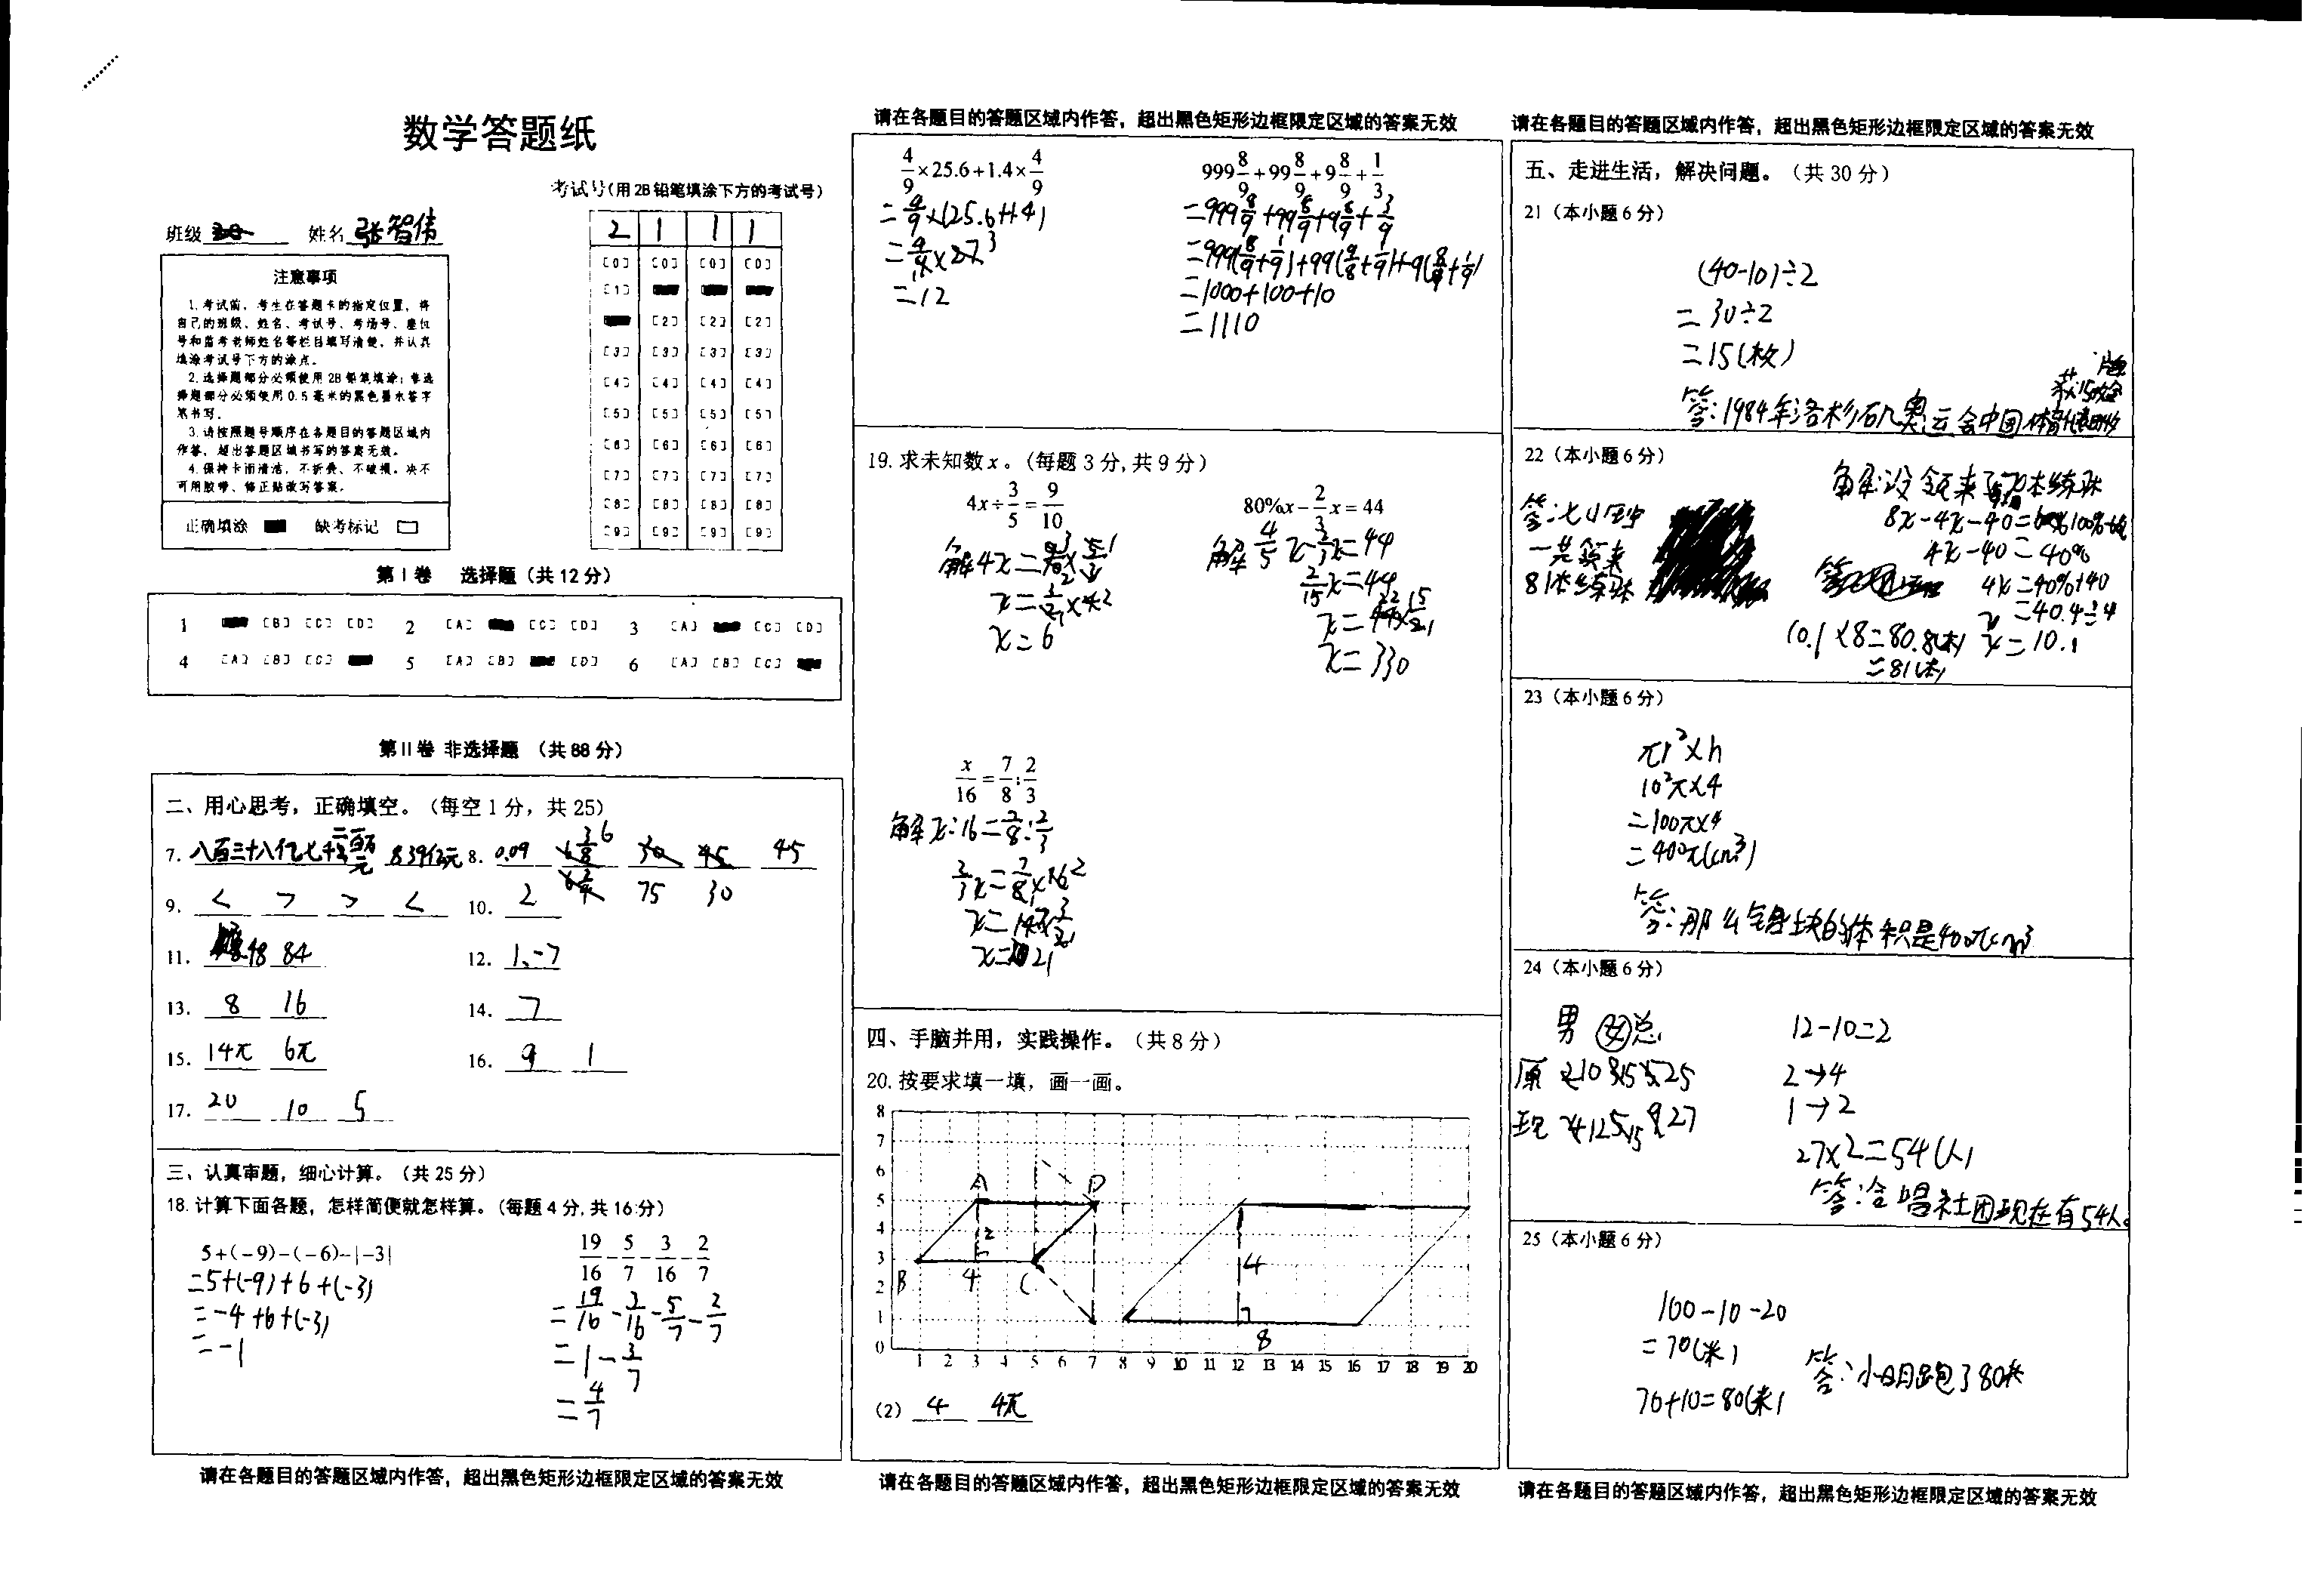 数学答题纸
考试号(用2B铅笔填涂下方的考试号)
班级 姓名 张智伟
2 1 1 1
注意事项
1.考试前,考生在答题卡的指定位置,将
自己的班级、姓名、考试号、考场号、座位
号和监考老师姓名等栏目填写清楚,并认真
填涂考试号下方的涂点。
2.选择题部分必须使用2B铅笔填涂;非选
择题部分必须使用0.5毫米的黑色墨水签字
笔书写。
3.请按照题号顺序在各题目的答题区域内
作答,超出答题区域书写的答案无效。
4.保持卡面清洁,不折叠、不破损。决不
可用胶带、修正贴改写答案。
正确填涂 缺考标记
[0] [0] [0] [0]
[1]
[2] [2] [2]
[3] [3] [3] [3]
[4] [4] [4] [4]
[5] [5] [5] [5]
[6] [6] [6] [6]
[7] [7] [7] [7]
[8] [8] [8] [8]
[9] [9] [9] [9]
第Ⅰ卷 选择题(共12分)
1 [B] [C] [D] 2 [A] [C] [D] 3 [A] [C] [D]
4 [A] [B] [C] 5 [A] [B] [D] 6 [A] [B] [C]
第Ⅱ卷 非选择题 (共88分)
二、用心思考,正确填空。(每空1分,共25)
7. 八百三十八亿七千 839亿元 8. 0.09 6 75 30 45
9. < > > < 10. 2
11. 48 84 12. 1、-7
13. 8 16 14. 7
15. 14π 6π 16. 9 1
17. 20 10 5
三、认真审题,细心计算。(共25分)
18.计算下面各题,怎样简便就怎样算。(每题4分,共16分)
5+(-9)-(-6)-|-3|
=5+(-9)+6+(-3)
=-4+6+(-3)
=-1
19/16-5/7-3/16-2/7
=19/16-3/16-5/7-2/7
=1-3/7
=4/7
请在各题目的答题区域内作答,超出黑色矩形边框限定区域的答案无效
请在各题目的答题区域内作答,超出黑色矩形边框限定区域的答案无效
4/9×25.6+1.4×4/9
=4/9×(25.6+1.4)
=4/9×27
=12
999 8/9+99 8/9+9 8/9+1/3
=999 8/9+99 8/9+9 8/9+3/9
=999(8/9+1/9)+99(9/8+1/9)+9(8/9+1/9)
=1000+100+10
=1110
19.求未知数x。(每题3分,共9分)
4x÷3/5=9/10
解4x=9/10×5/3
x=3/2×4
x=6
80%x-2/3x=44
解4/5x-2/3x=44
2/15x=44
x=44×15/2
x=330
x/16=7/8:2/3
解x:16=7/8:2/3
2/3x=7/8×16
x=14×3/2
x=21
四、手脑并用,实践操作。(共8分)
20.按要求填一填,画一画。
8
7
6
5
4
3
2
1
0
A D
B C
2
4
4
8
1 2 3 4 5 6 7 8 9 10 11 12 13 14 15 16 17 18 19 20
(2) 4 4π
请在各题目的答题区域内作答,超出黑色矩形边框限定区域的答案无效
请在各题目的答题区域内作答,超出黑色矩形边框限定区域的答案无效
五、走进生活,解决问题。(共30分)
21(本小题6分)
(40-10)÷2
=30÷2
=15(枚)
答:1984年洛杉矶奥运会中国体育代表团共获15枚金牌
22(本小题6分)
解:设领来了x本练习本
8x-4x-40=
4x-40=40%
4x=40%+40
x=40.4÷4
x=10.1
10.1×8=80.8(本)
=81(本)
答:七
一共领来
81本练习本
23(本小题6分)
πr²×h
10²π×4
=100π×4
=400π(cm³)
答:那么铅块的体积是400πcm³
24(本小题6分)
男 女 总
原 25
现 27
12-10=2
2→4
1→2
27×2=54(人)
答:合唱社团现在有54人。
25(本小题6分)
100-10-20
=70(米)
70+10=80(米)
答:小明跑了80米
请在各题目的答题区域内作答,超出黑色矩形边框限定区域的答案无效